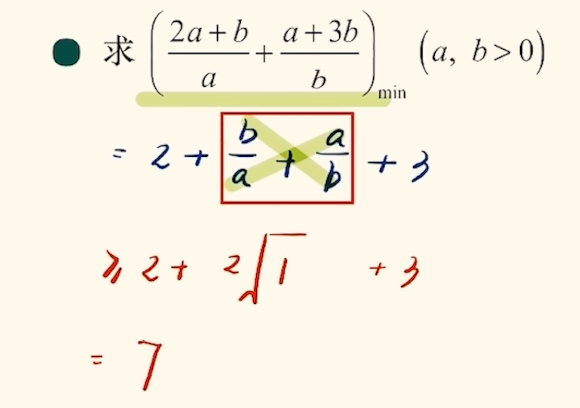 求 ( (2a+b)/a + (a+3b)/b )min (a, b>0)
= 2 + b/a + a/b + 3
≥ 2 + 2√1 + 3
= 7